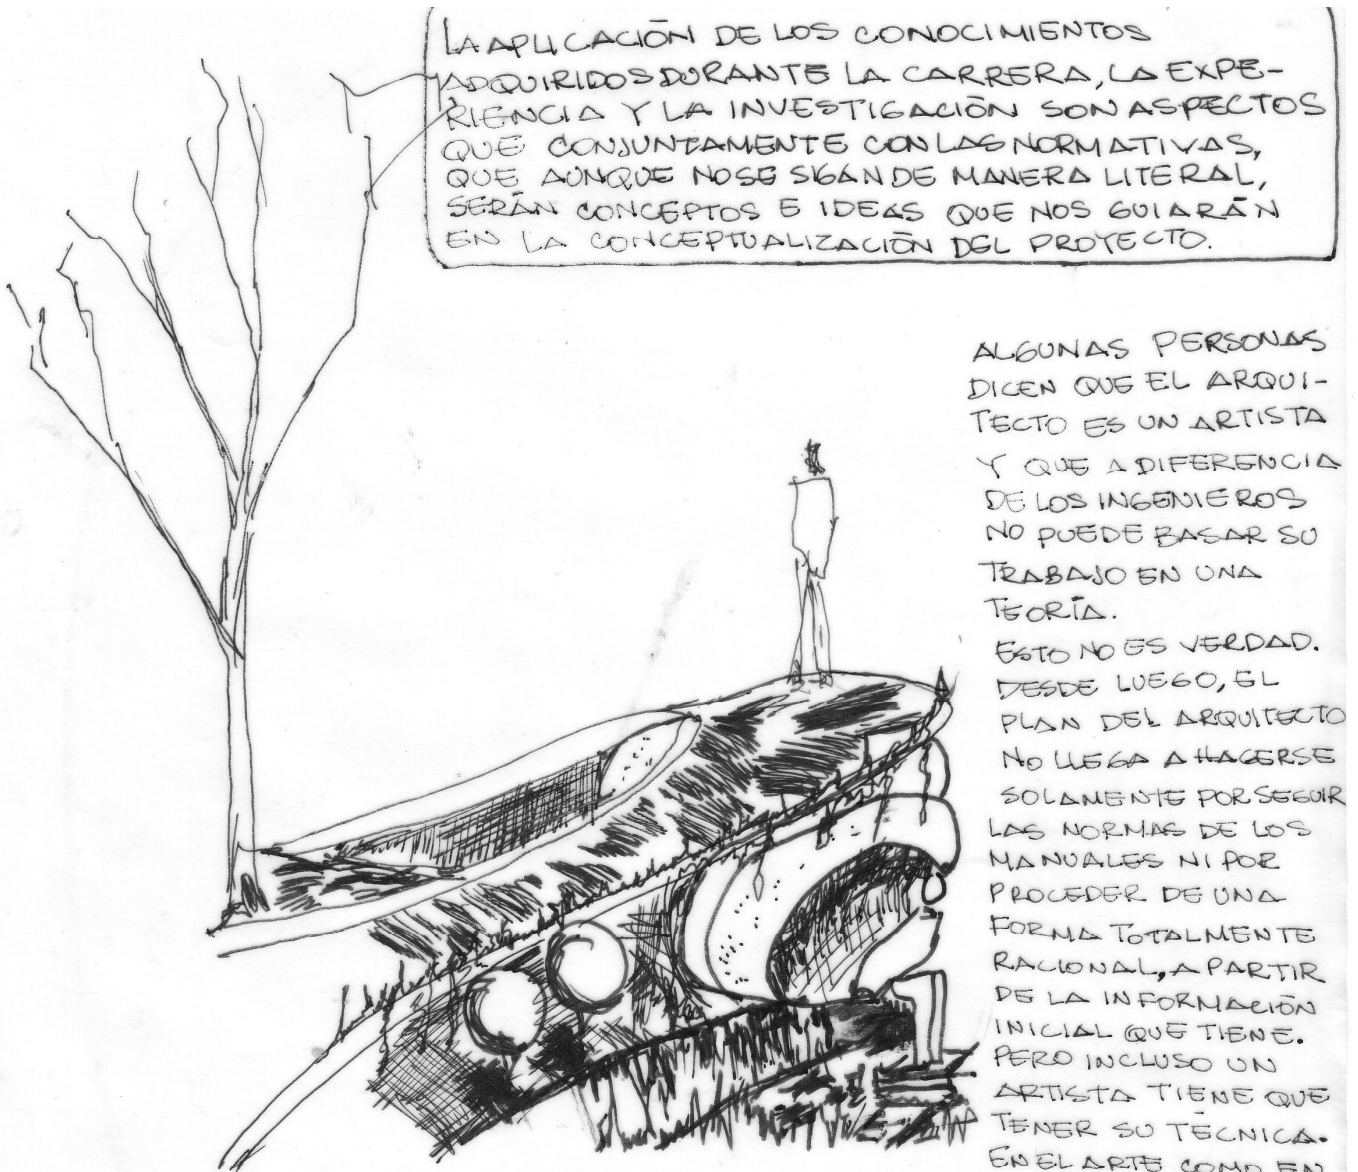 LA APLICACIÓN DE LOS CONOCIMIENTOS
ADQUIRIDOS DURANTE LA CARRERA, LA EXPE-
RIENCIA Y LA INVESTIGACIÓN SON ASPECTOS
QUE CONJUNTAMENTE CON LAS NORMATIVAS,
QUE AUNQUE NO SE SIGAN DE MANERA LITERAL,
SERÁN CONCEPTOS E IDEAS QUE NOS GUIARÁN
EN LA CONCEPTUALIZACIÓN DEL PROYECTO.
ALGUNAS PERSONAS
DICEN QUE EL ARQUI-
TECTO ES UN ARTISTA
Y QUE A DIFERENCIA
DE LOS INGENIEROS
NO PUEDE BASAR SU
TRABAJO EN UNA
TEORÍA.
ESTO NO ES VERDAD.
DESDE LUEGO, EL
PLAN DEL ARQUITECTO
NO LLEGA A HACERSE
SOLAMENTE POR SEGUIR
LAS NORMAS DE LOS
MANUALES NI POR
PROCEDER DE UNA
FORMA TOTALMENTE
RACIONAL, A PARTIR
DE LA INFORMACIÓN
INICIAL QUE TIENE.
PERO INCLUSO UN
ARTISTA TIENE QUE
TENER SU TÉCNICA.
EN EL ARTE COMO EN